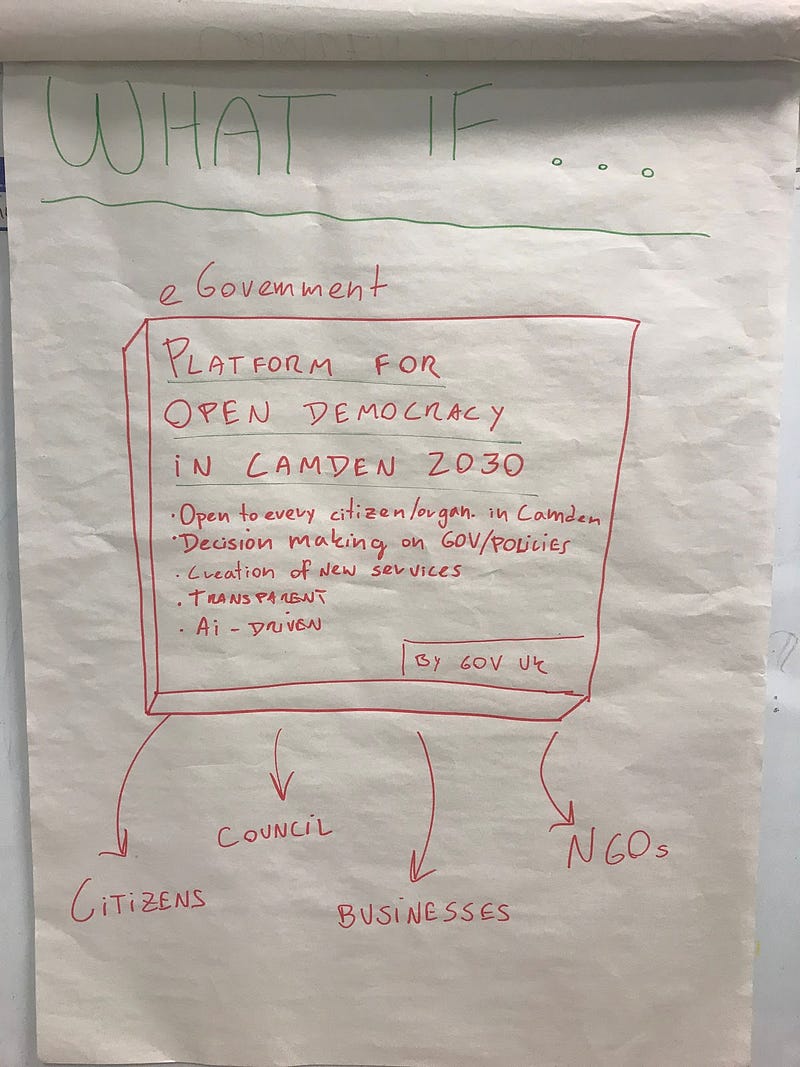 WHAT IF ...
e Government
PLATFORM FOR
OPEN DEMOCRACY
iN CAMDEN 2030
· Open to every citizen/organ. in Camden
· Decision making on GOV/POLiCiES
· Creation of New services
· TRANSPARENT
· Ai - DRiVEN
BY GOV UK
COUNCiL
NGOs
CiTiZENS
BUSiNESSES